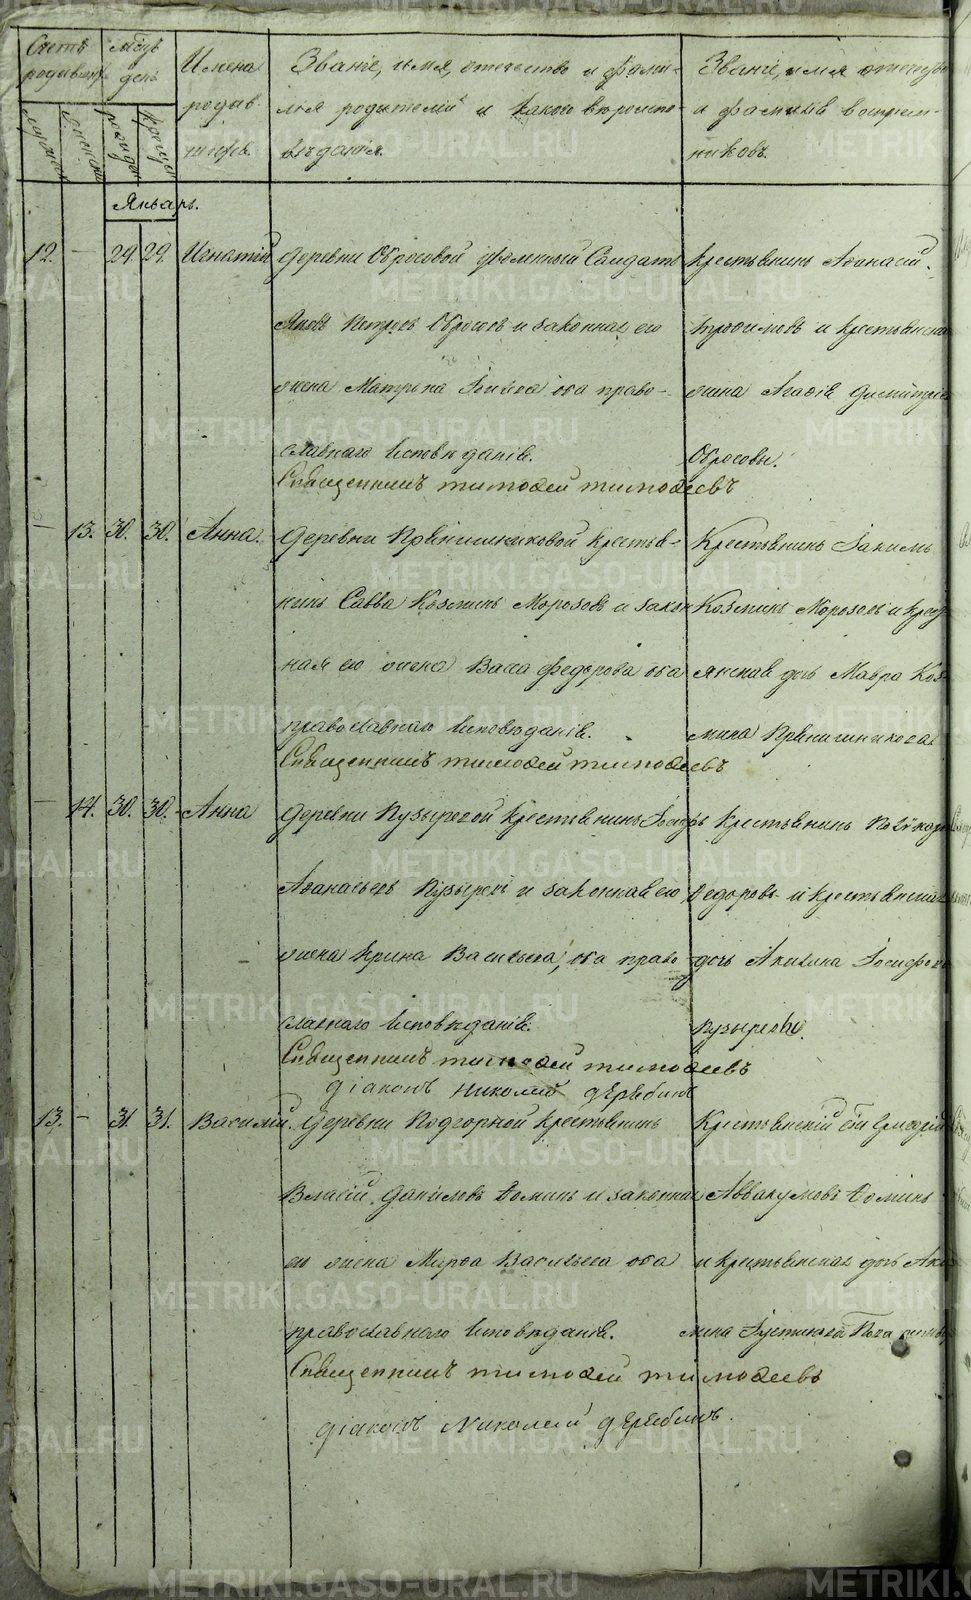 Счетъ родившихся
мужеска
женска
Мѣсяцъ день
рожденія
крещенія
Имена родив-
шихся.
Званіе, имя, отечество и фами-
лія родителей и какого вѣроиспо-
вѣданія.
Званіе, имя отечество
и фамилія воспріем-
никовъ.
Январь.
12. — 29. 29. Игнатій
деревни Обросовой Солдатъ
Яковъ Петровъ Обросовъ и законная его
жена Матрона оба право-
славнаго исповѣданія.
Священникъ Тимофей Тимофеевъ
Крестьянинъ Аѳанасій
Трофимовъ и крестьянская
жена Агафія Димитріева
Обросовы.
— 13. 30. 30. Анна.
деревни Прянишниковой крестья-
нинъ Савва Козминъ Морозовъ и закон-
ная его жена Васса Федорова оба
православнаго исповѣданія.
Священникъ Тимофей Тимофеевъ
Крестьянинъ Іакимъ
Козминъ Морозовъ и крестъ
янская дочь Мавра Коз-
мина Прянишникова
— 14. 30. 30. Анна
деревни Пузыревой крестьянинъ Іосифъ
Аѳанасьевъ Пузыревъ и законная его
жена Ирина Васильева, оба право
славнаго исповѣданія.
Священникъ Тимофей Тимофеевъ
діаконъ Николай дерябинъ
крестьянинъ Поликарпъ
Федоровъ и крестьянская
дочь Акилина Іосифова
Пузыревы.
13. — 31. 31. Василій.
деревни Подгорной крестьянинъ
Власій Даниловъ Ѳоминъ и законная
его жена Марѳа Васильева оба
православнаго исповѣданія.
Священникъ Тимофей Тимофеевъ
діаконъ Николай дерябинъ.
Крестьянскій
Аввакумовъ Ѳоминъ
и крестьянская дочь
Іустиньева
METRIKI.GASO-URAL.RU